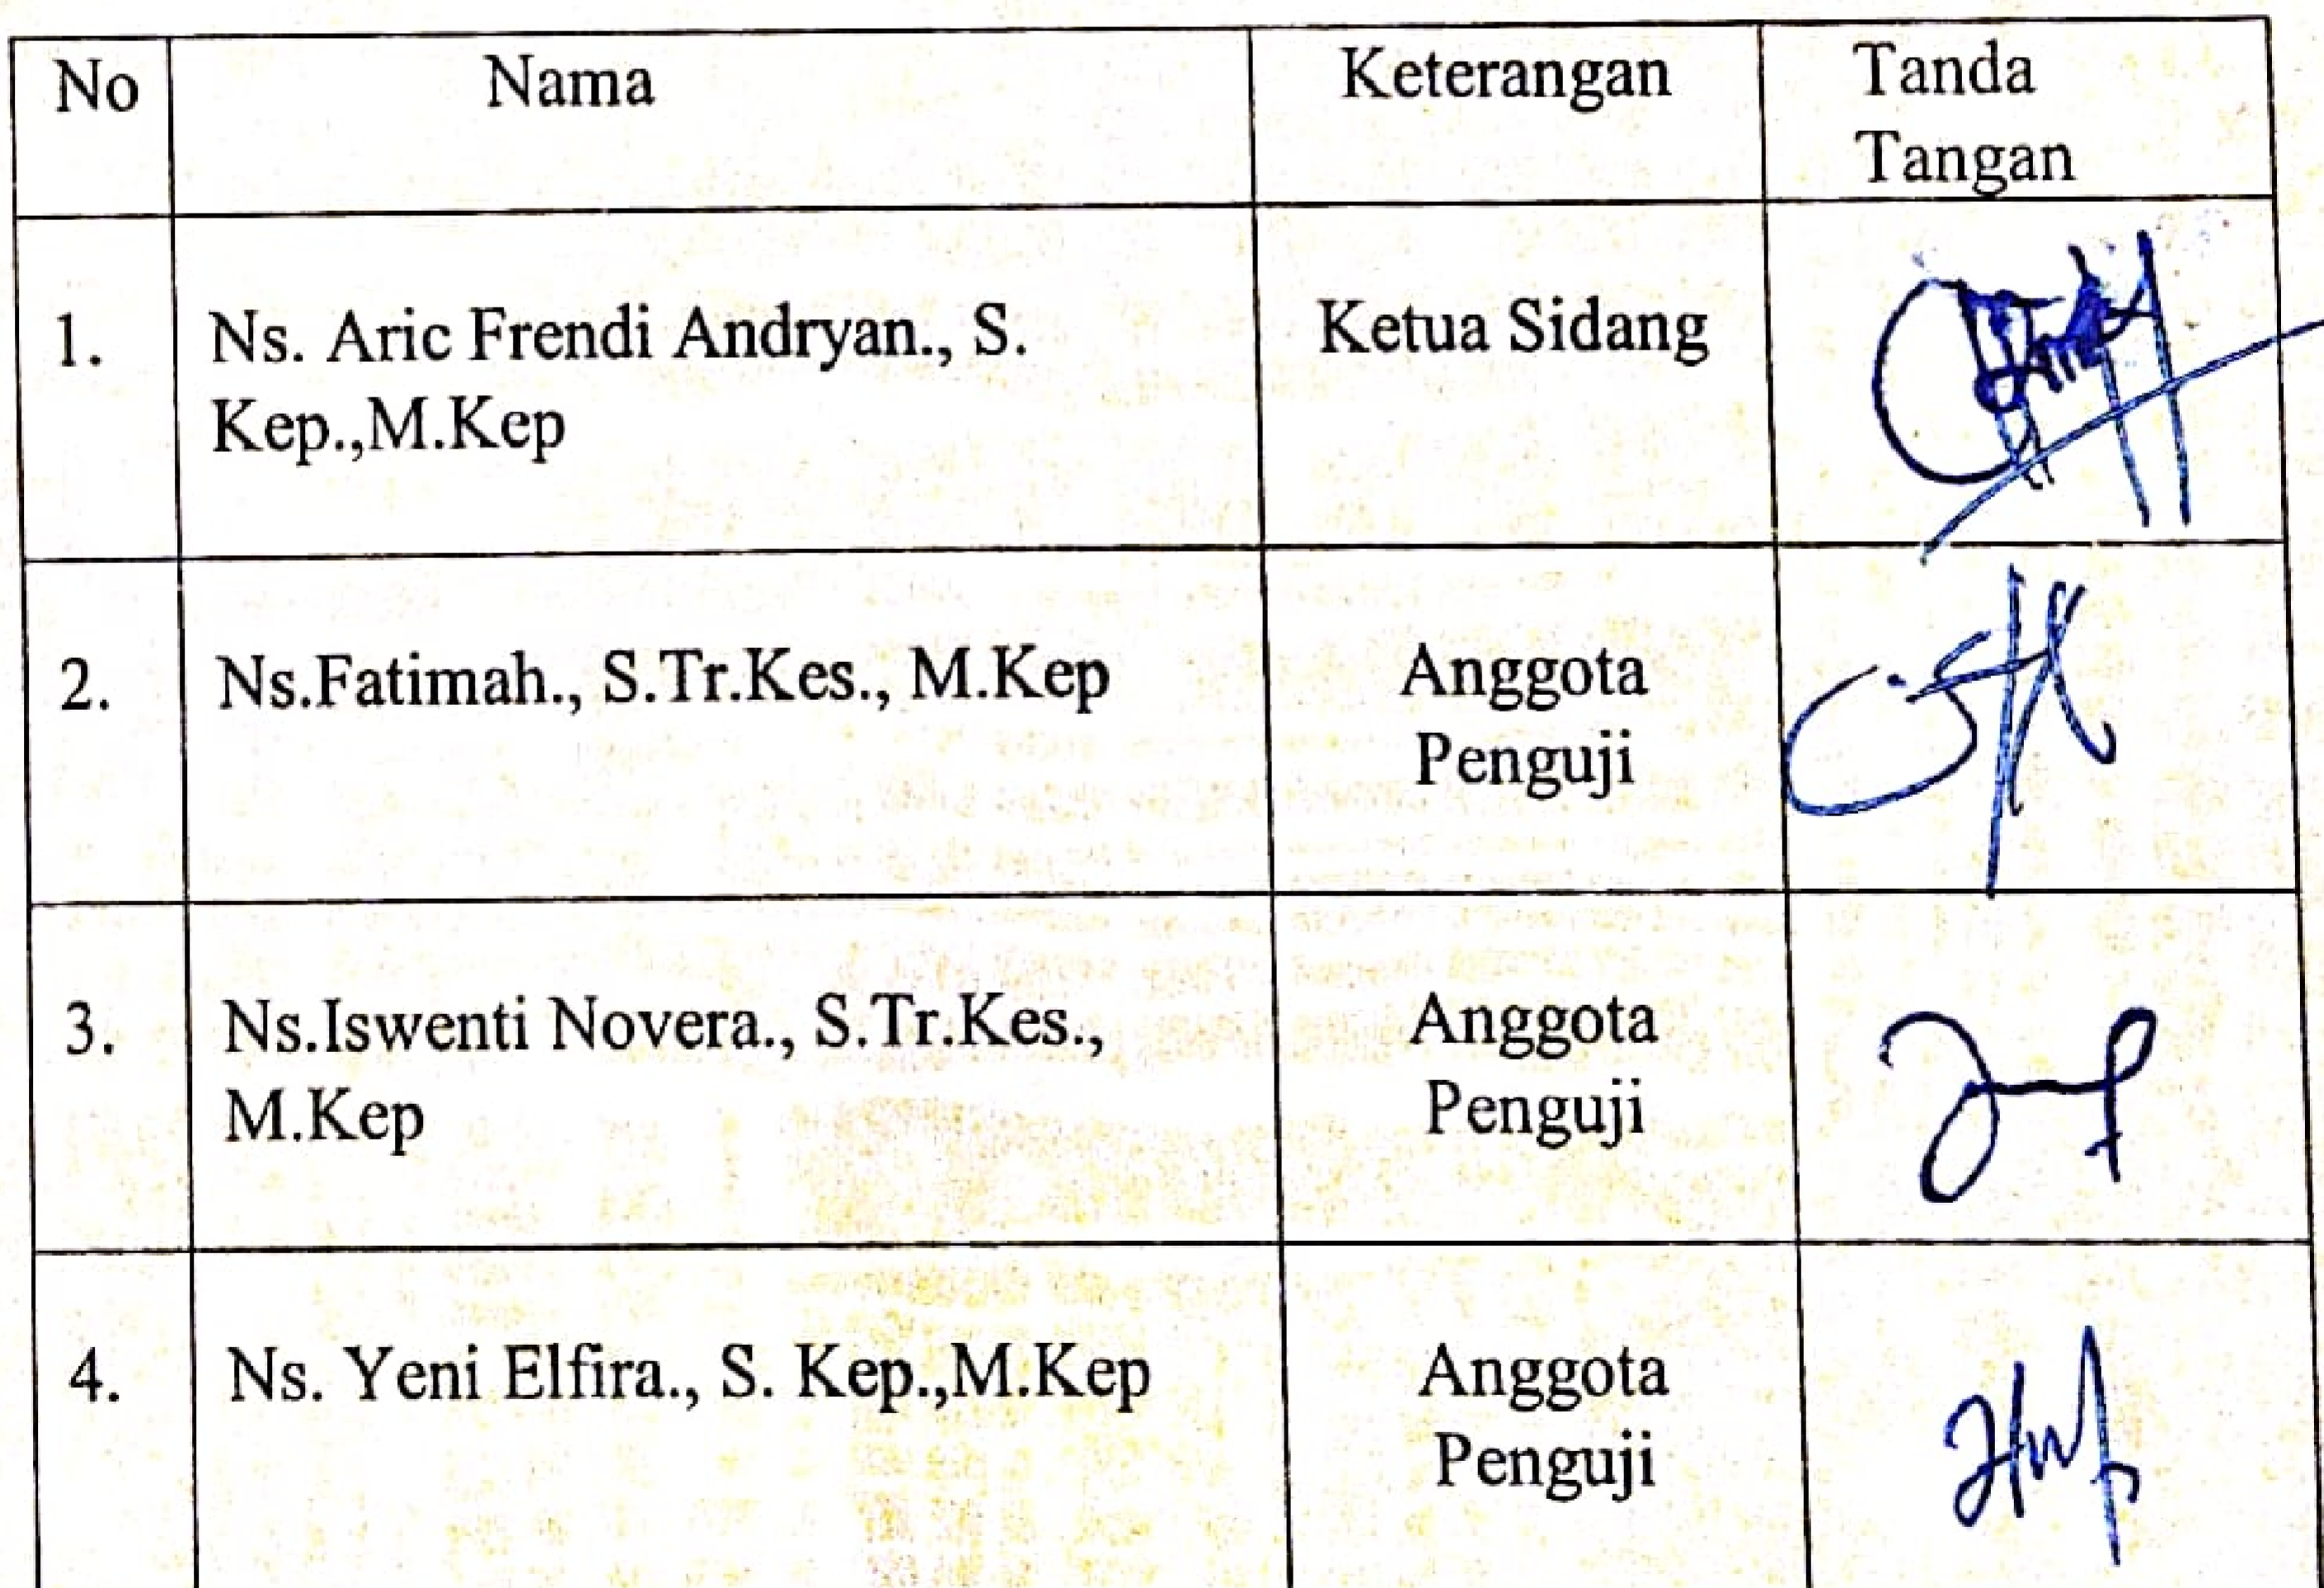 No Nama Keterangan Tanda
Tangan
1. Ns. Aric Frendi Andryan., S. Ketua Sidang
Kep.,M.Kep
2. Ns.Fatimah., S.Tr.Kes., M.Kep Anggota
Penguji
3. Ns.Iswenti Novera., S.Tr.Kes., Anggota
M.Kep Penguji
4. Ns. Yeni Elfira., S. Kep.,M.Kep Anggota
Penguji